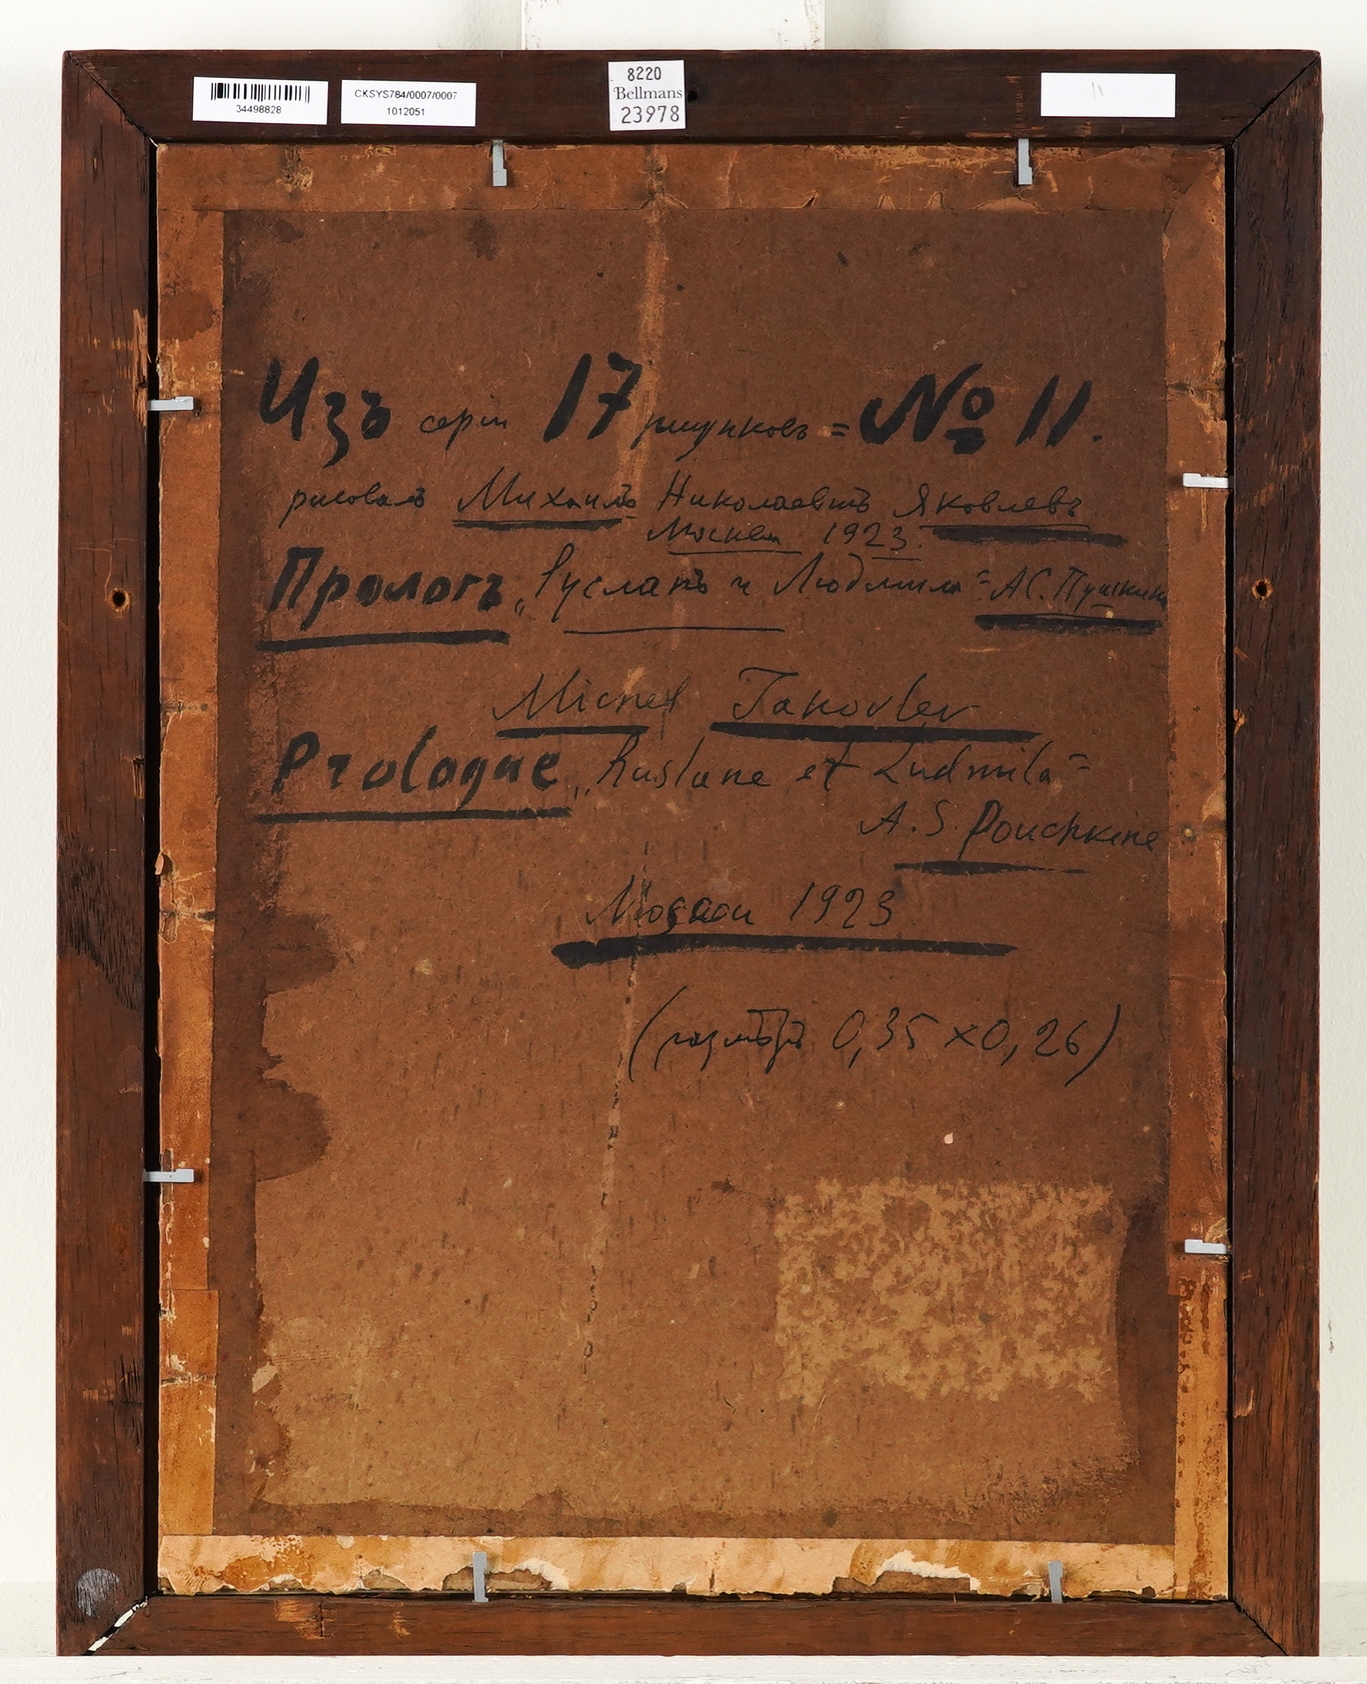 34498828
CKSYS784/0007/0007
1012051
8220
Bellmans
23978
11
Изъ серіи 17 рисунковъ = № 11.
рисовалъ Михаилъ Николаевичъ Яковлевъ
Москва 1923.
Прологъ „Русланъ и Людмила" = А.С. Пушкин
Michel Jakovlev
Prologue „Ruslane et Ludmila" =
A. S. Pouchkine
Moscou 1923
(размѣръ 0,35 × 0,26)